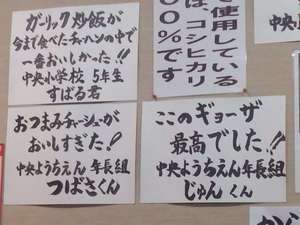 ガーリック炒飯が
今まで食べたチャーハンの中で
一番おいしかった!!
中央小学校 5年生
すばる君
使用している
は、コシヒカリ
00%です
おつまみチャーシューが
おいしすぎた!!
中央ようちえん 年長組
つばさくん
このギョーザ
最高でした!!
中央ようちえん 年長組
じゅんくん
から